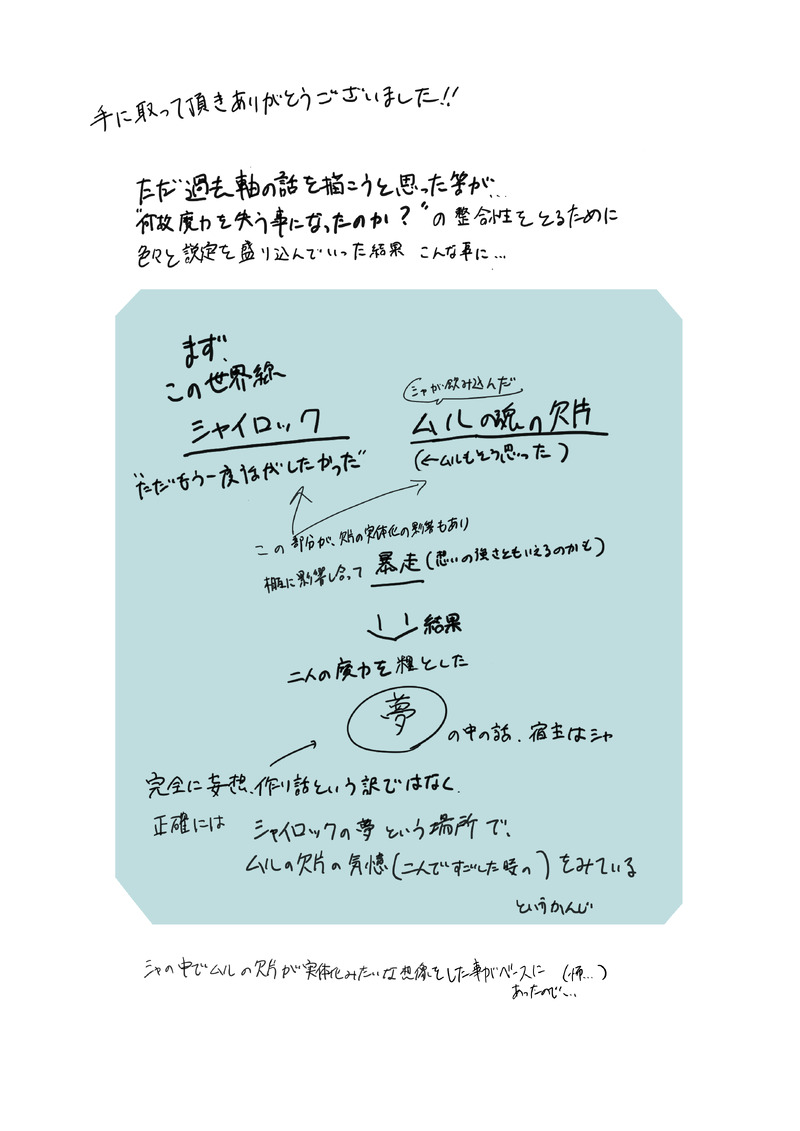 手に取って頂きありがとうございました!!
ただ過去軸の話を描こうと思った筈が…
"何故魔力を失う事になったのか?"の整合性をとるために
色々と設定を盛り込んでいった結果 こんな事に…
まず、
この世界線
シャイロック
"ただもう一度はがしたかった"
シャが飲み込んだ
ムルの魂の欠片
(←ムルもそう思った)
この部分が、欠片の実体化の影響もあり
相互に影響し合って 暴走(思いの強さともいえるのかも)
結果
二人の魔力を糧とした
夢の中の話、宿主はシャ
完全に妄想、作り話という訳ではなく、
正確には シャイロックの夢という場所で、
ムルの欠片の気憶(二人ですごした時の)をみている
というかんじ
シャの中でムルの欠片が実体化みたいな想像をした事がベースに
あったので…